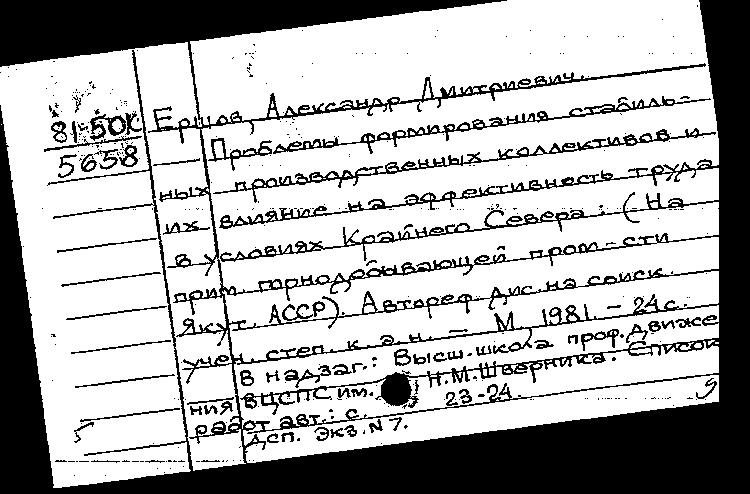 81-50К
5658
Ершов, Александр Дмитриевич.
Проблемы формирования стабиль-
ных производственных коллективов и
их влияние на эффективность труда
в условиях Крайнего Севера: (На
прим. горнодобывающей пром-сти
Якут. АССР). Автореф. дис. на соиск.
учен. степ. к. э. н. - М, 1981. - 24 с.
В надзаг.: Высш. школа проф. движе
ния ВЦСПС им. Н.М. Шверника. Список
работ авт.: с. 23-24.
ДСП. Экз. N 7.